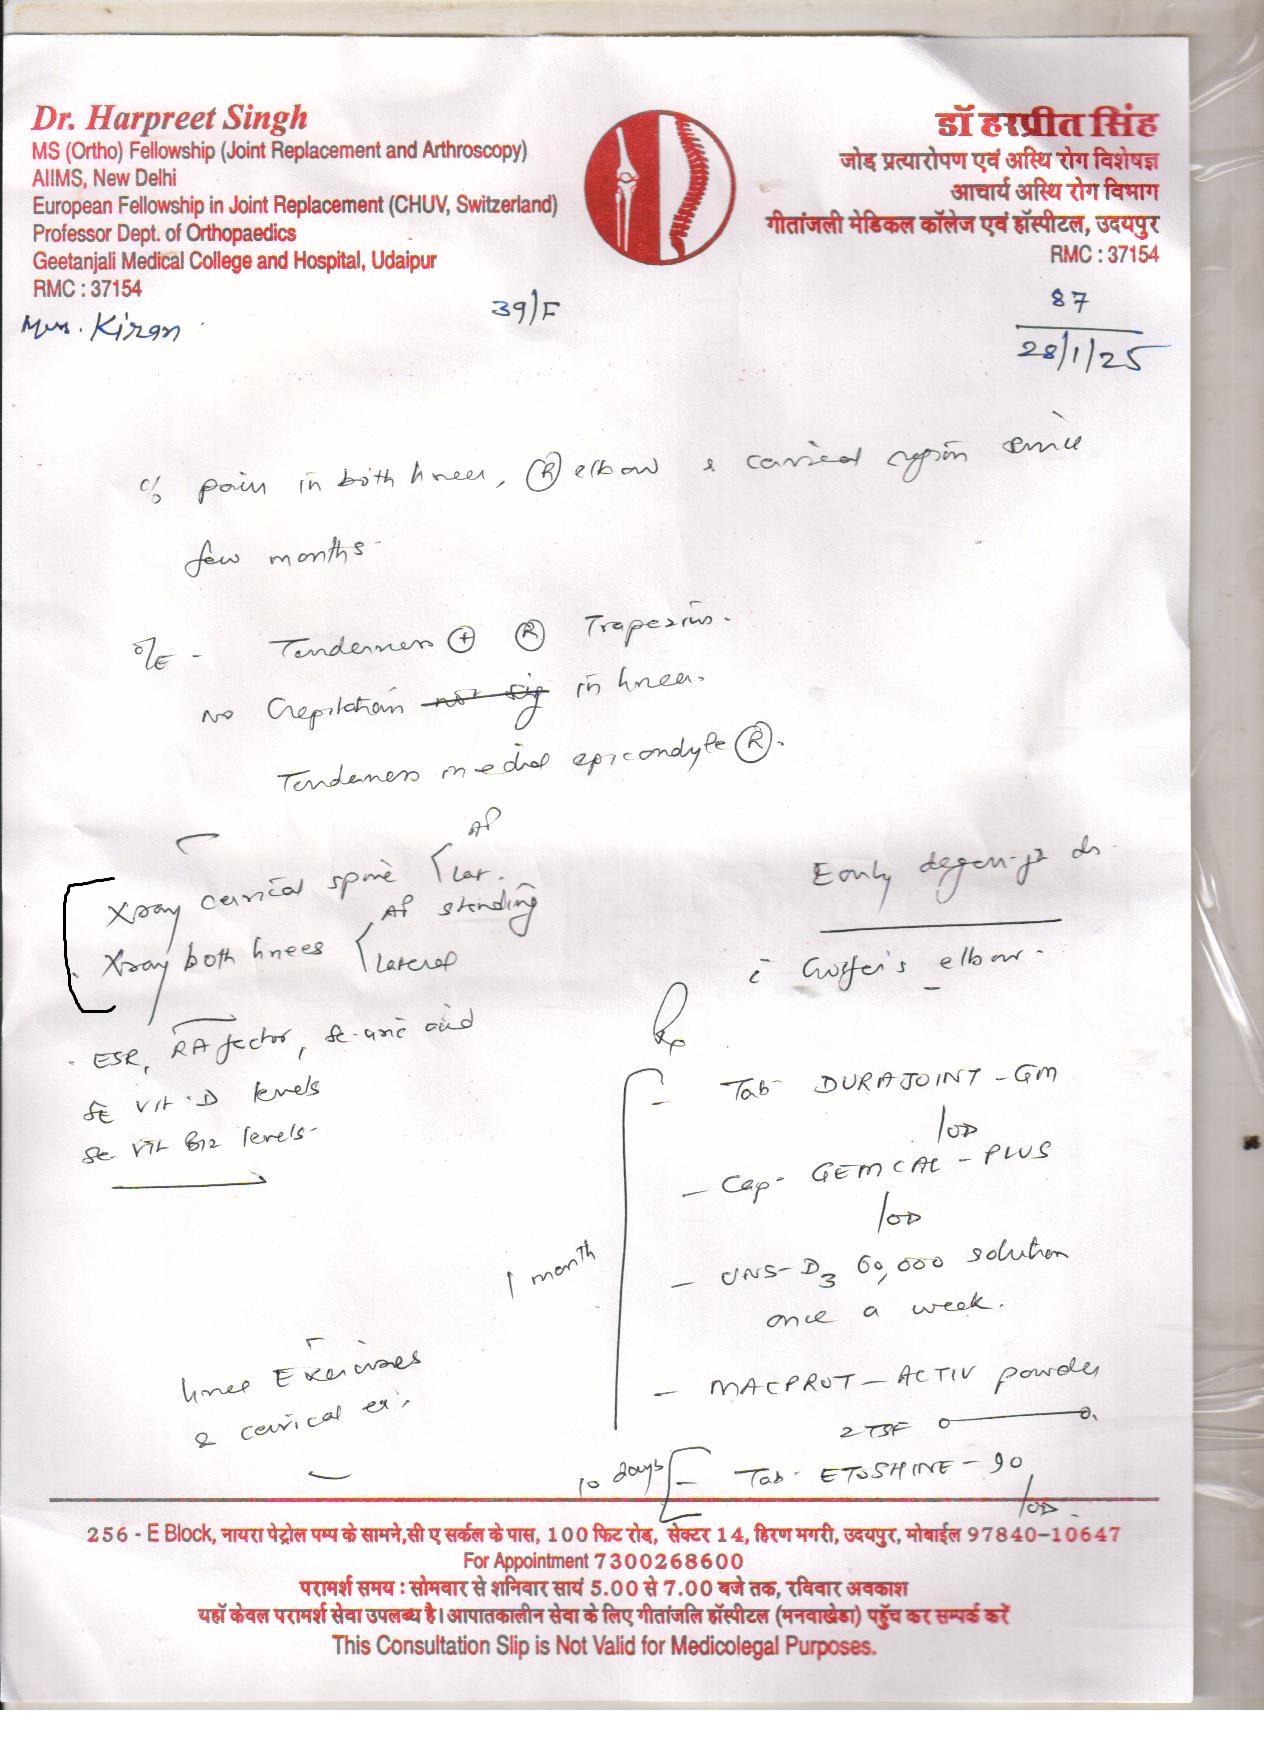 Dr. Harpreet Singh
MS (Ortho) Fellowship (Joint Replacement and Arthroscopy)
AIIMS, New Delhi
European Fellowship in Joint Replacement (CHUV, Switzerland)
Professor Dept. of Orthopaedics
Geetanjali Medical College and Hospital, Udaipur
RMC : 37154
डॉ हरप्रीत सिंह
जोड प्रत्यारोपण एवं अस्थि रोग विशेषज्ञ
आचार्य अस्थि रोग विभाग
गीतांजली मेडिकल कॉलेज एवं हॉस्पीटल, उदयपुर
RMC : 37154
Mrs. Kiran
39/F
87
28/1/25
c/o pain in both knees, (R) elbow & cervical region since
few months
O/E - Tenderness (+) (R) Trapezius.
No Crepitation in knee.
Tenderness medial epicondyle (R).
Xray cervical spine AP
Lat.
Xray both knees AP standing
Lateral
ESR, RA factor, Se. uric acid
Se Vit. D levels
Se Vit B12 levels
Early degen.
c̄ Golfer's elbow.
Rp
1 month
- Tab DURAJOINT - GM
1 OD
- Cap- GEMCAL - PLUS
1 OD
- UNS- D3 60,000 solution
once a week.
- MACPROT - ACTIV powder
2 TSF 0——0.
10 days
- Tab- ETOSHINE - 90
1 OD.
knee Exercises
& cervical ex.
256 - E Block, नायरा पेट्रोल पम्प के सामने,सी ए सर्कल के पास, 100 फिट रोड, सेक्टर 14, हिरण मगरी, उदयपुर, मोबाईल 97840-10647
For Appointment 7300268600
परामर्श समय : सोमवार से शनिवार सायं 5.00 से 7.00 बजे तक, रविवार अवकाश
यहॉ केवल परामर्श सेवा उपलब्ध है। आपातकालीन सेवा के लिए गीतांजलि हॉस्पीटल (मनवाखेडा) पहुँच कर सम्पर्क करें
This Consultation Slip is Not Valid for Medicolegal Purposes.